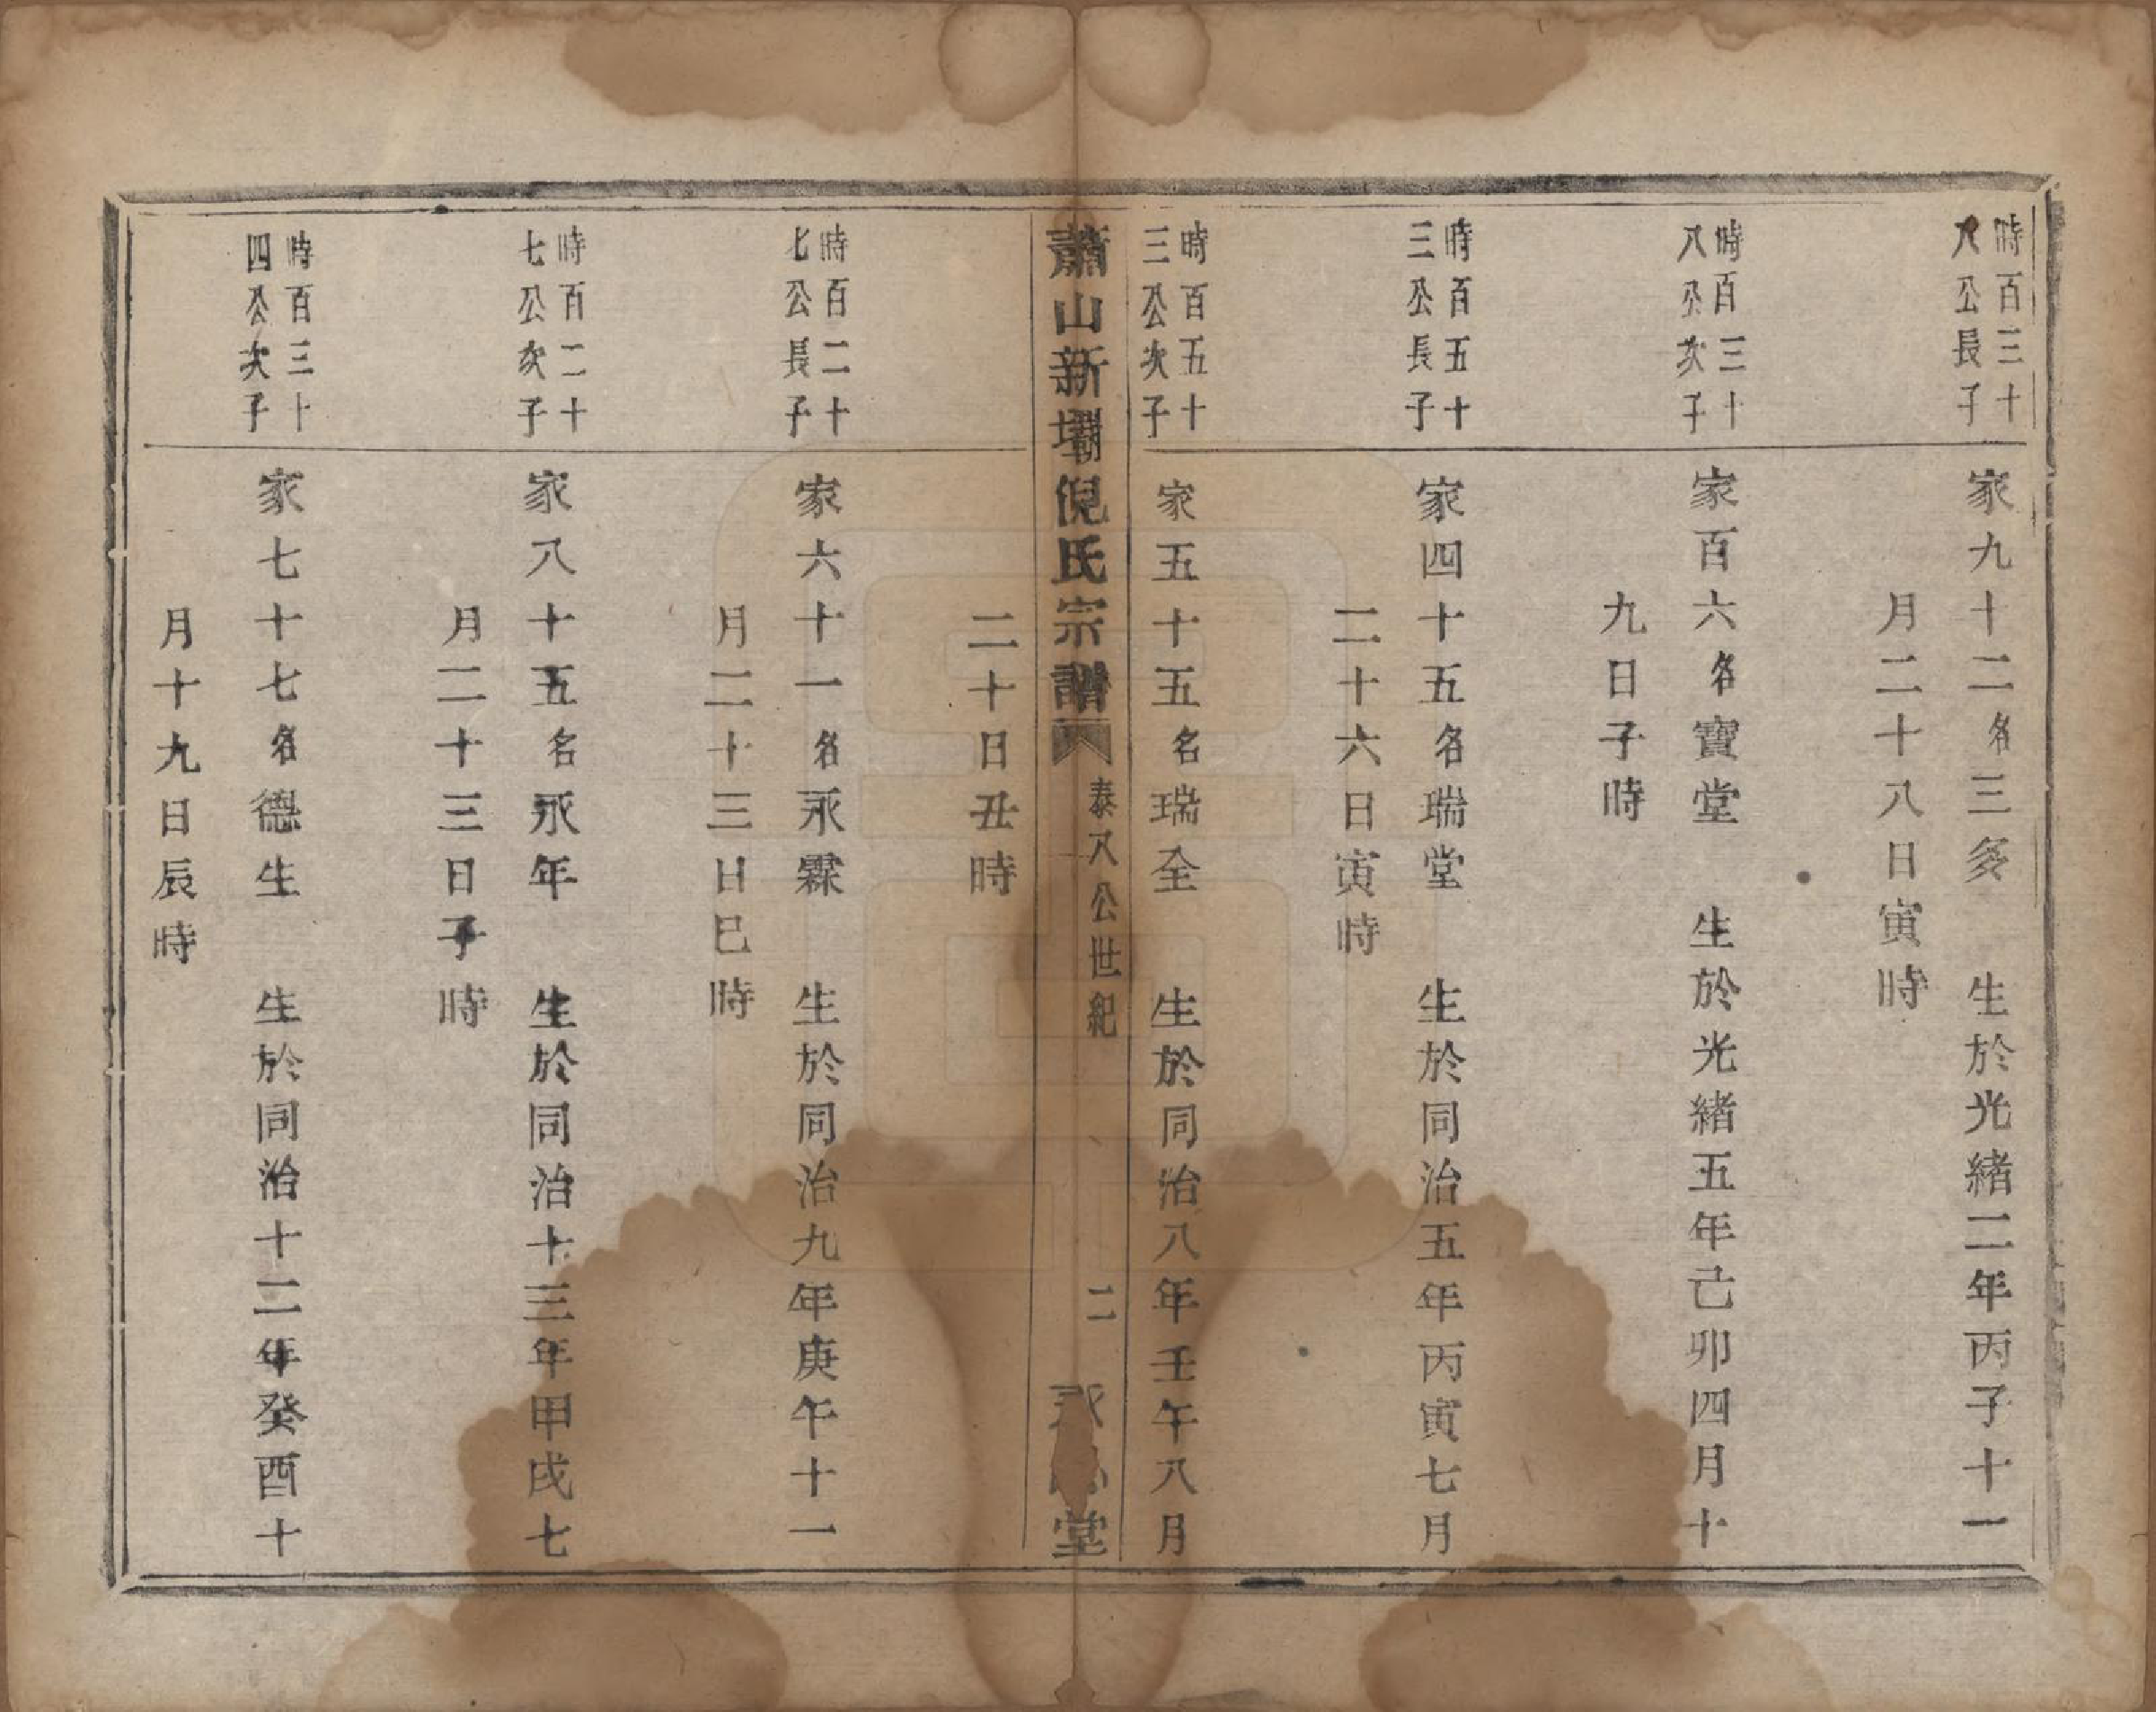 時百三十
八公長子
家九十二名三多　生於光緒二年丙子十一
月二十八日寅時
時百三十
八公次子
家百六名寶堂　生於光緒五年己卯四月十
九日子時
時百五十
三公長子
家四十五名瑞堂　生於同治五年丙寅七月
二十六日寅時
時百五十
三公次子
家五十五名瑞全　生於同治八年壬午八月
二十日丑時
蕭山新壩倪氏宗譜
泰八公世紀
二
堂
時百二十
七公長子
家六十一名永霖　生於同治九年庚午十一
月二十三日巳時
時百二十
七公次子
家八十五名永年　生於同治十三年甲戌七
月二十三日子時
時百三十
四公次子
家七十七名德生　生於同治十二年癸酉十
月十九日辰時